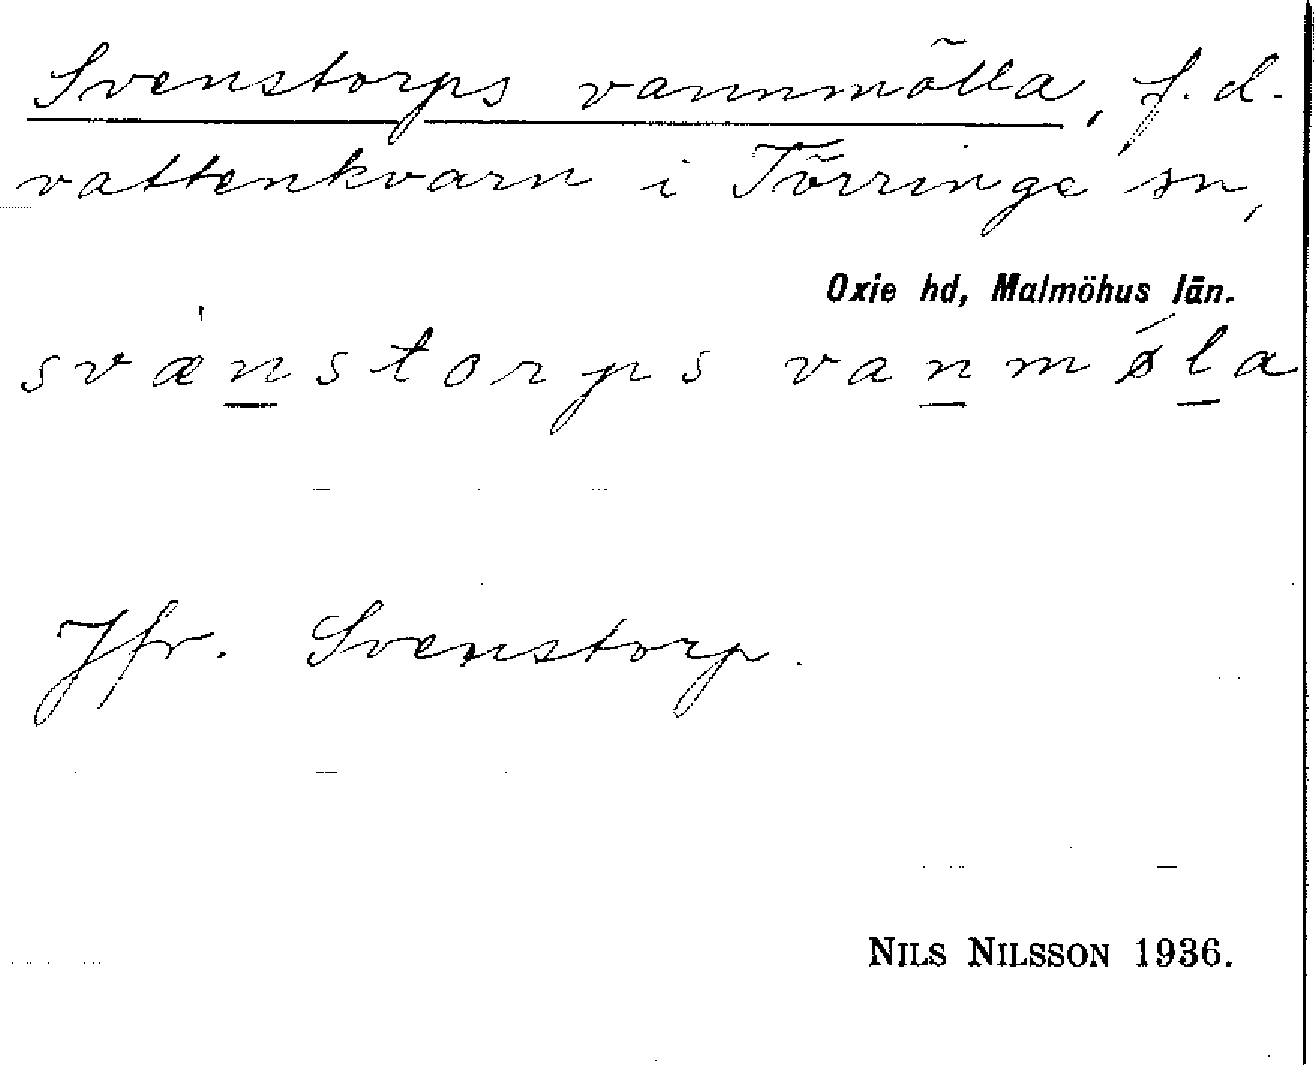 Svenstorps vannmölla, f.d.
vattenkvarn i Törringe sn,
Oxie hd, Malmöhus län.
svæ̀nstorps vanmǿla
Jfr. Svenstorp.
NILS NILSSON 1936.